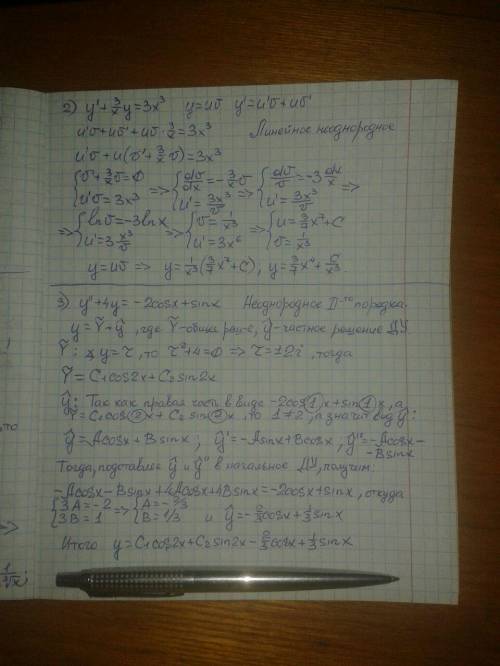 2) y' + 3/x y = 3x³   y = uv   y' = u'v + uv'
u'v + uv' + uv · 3/x = 3x³   Линейное неоднородное
u'v + u(v' + 3/x v) = 3x³
{v' + 3/x v = 0; u'v = 3x³ => {dv/dx = -3/x v; u' = 3x³/v => {dv/v = -3 dx/x; u' = 3x³/v =>
=> {ln v = -3 ln x; u' = 3 x³/v => {v = 1/x³; u' = 3x⁶ => {u = 3/7 x⁷ + C; v = 1/x³
y = uv => y = 1/x³ (3/7 x⁷ + C), y = 3/7 x⁴ + C/x³
3) y'' + 4y = -2cosx + sinx   Неоднородное II-го порядка.
y = Ỹ + ŷ, где Ỹ - общее реш-е, ŷ - частное решение ДУ.
Ỹ: y = τ, то τ² + 4 = 0 => τ = ±2i, тогда
Ỹ = C₁cos2x + C₂sin2x
ŷ: Так как правая часть в виде -2cos(1)x + sin(1)x, а
Ỹ = C₁cos(2)x + C₂sin(2)x, то 1 ≠ 2, а значит вид ŷ:
ŷ = Acosx + Bsinx; ŷ' = -Asinx + Bcosx, ŷ'' = -Acosx -
- Bsinx
Тогда, подставив ŷ и ŷ'' в начальное ДУ, получим:
-Acosx - Bsinx + 4Acosx + 4Bsinx = -2cosx + sinx, откуда
{3A = -2; 3B = 1 => {A = -2/3; B = 1/3 и ŷ = -2/3 cosx + 1/3 sinx
Итого y = C₁cos2x + C₂sin2x - 2/3 cosx + 1/3 sinx